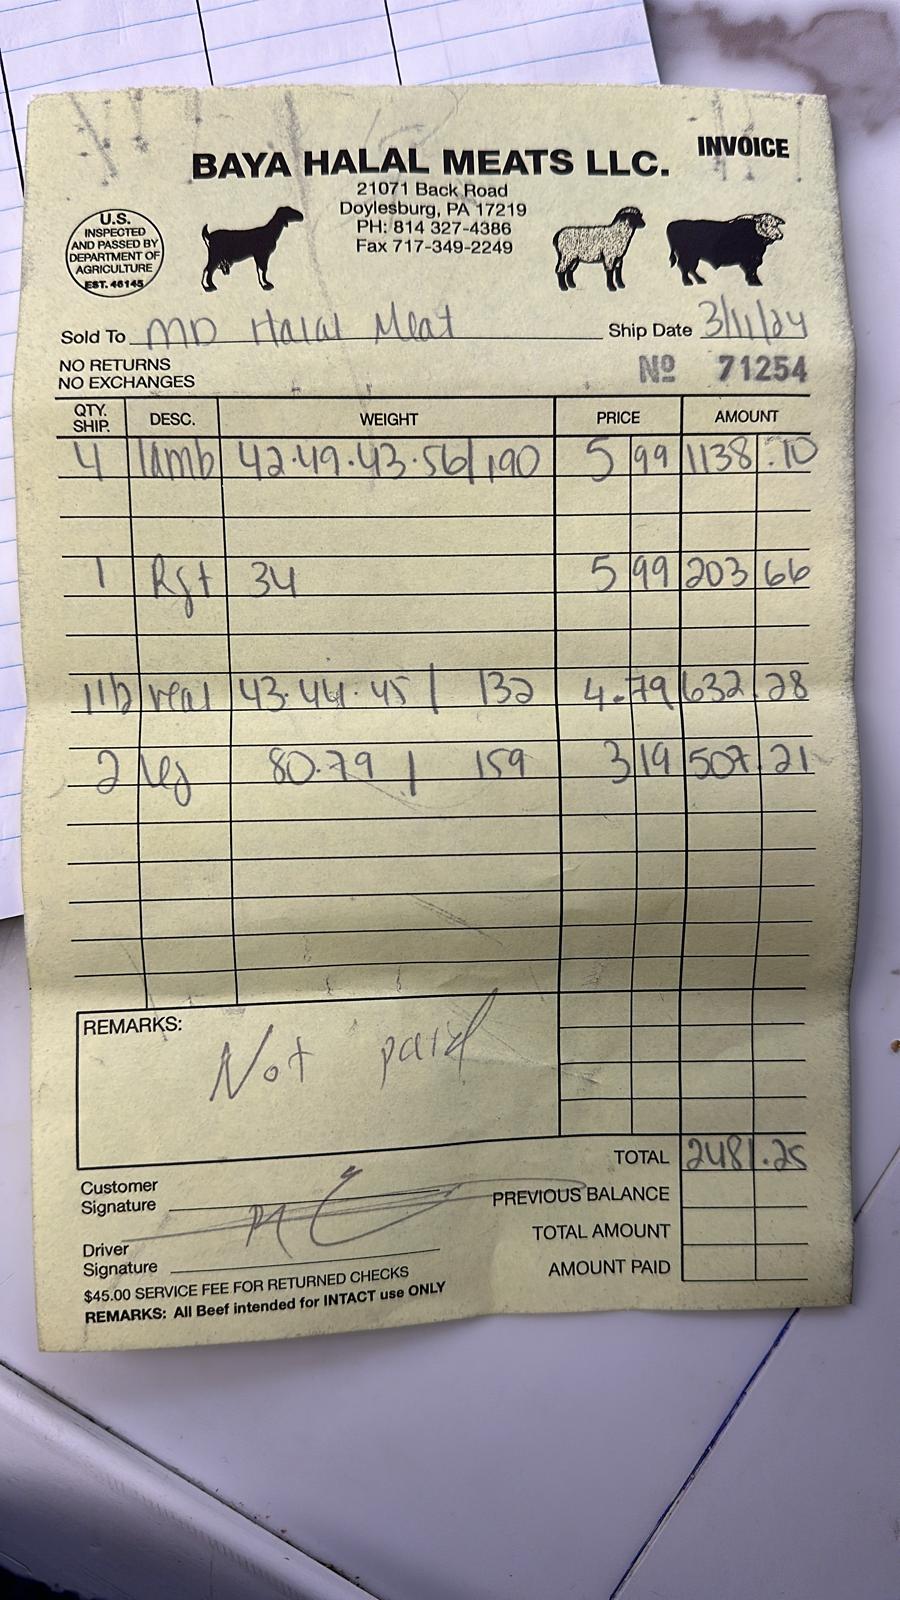 INVOICE
BAYA HALAL MEATS LLC.
21071 Back Road
Doylesburg, PA 17219
PH: 814 327-4386
Fax 717-349-2249
U.S.
INSPECTED
AND PASSED BY
DEPARTMENT OF
AGRICULTURE
EST. 46145
Sold To MD Halal Meat Ship Date 3/11/24
NO RETURNS
NO EXCHANGES
№ 71254
QTY. SHIP. DESC. WEIGHT PRICE AMOUNT
4 lamb 42.49.43.56/190 5 99 1138.10
1 34 5 99 203 66
veal 43.44.45 / 132 4.79 632.28
2 leg 80.79 / 159 3 19 507.21
REMARKS:
Not paid
TOTAL 2481.25
Customer
Signature
PREVIOUS BALANCE
TOTAL AMOUNT
Driver
Signature
AMOUNT PAID
$45.00 SERVICE FEE FOR RETURNED CHECKS
REMARKS: All Beef intended for INTACT use ONLY